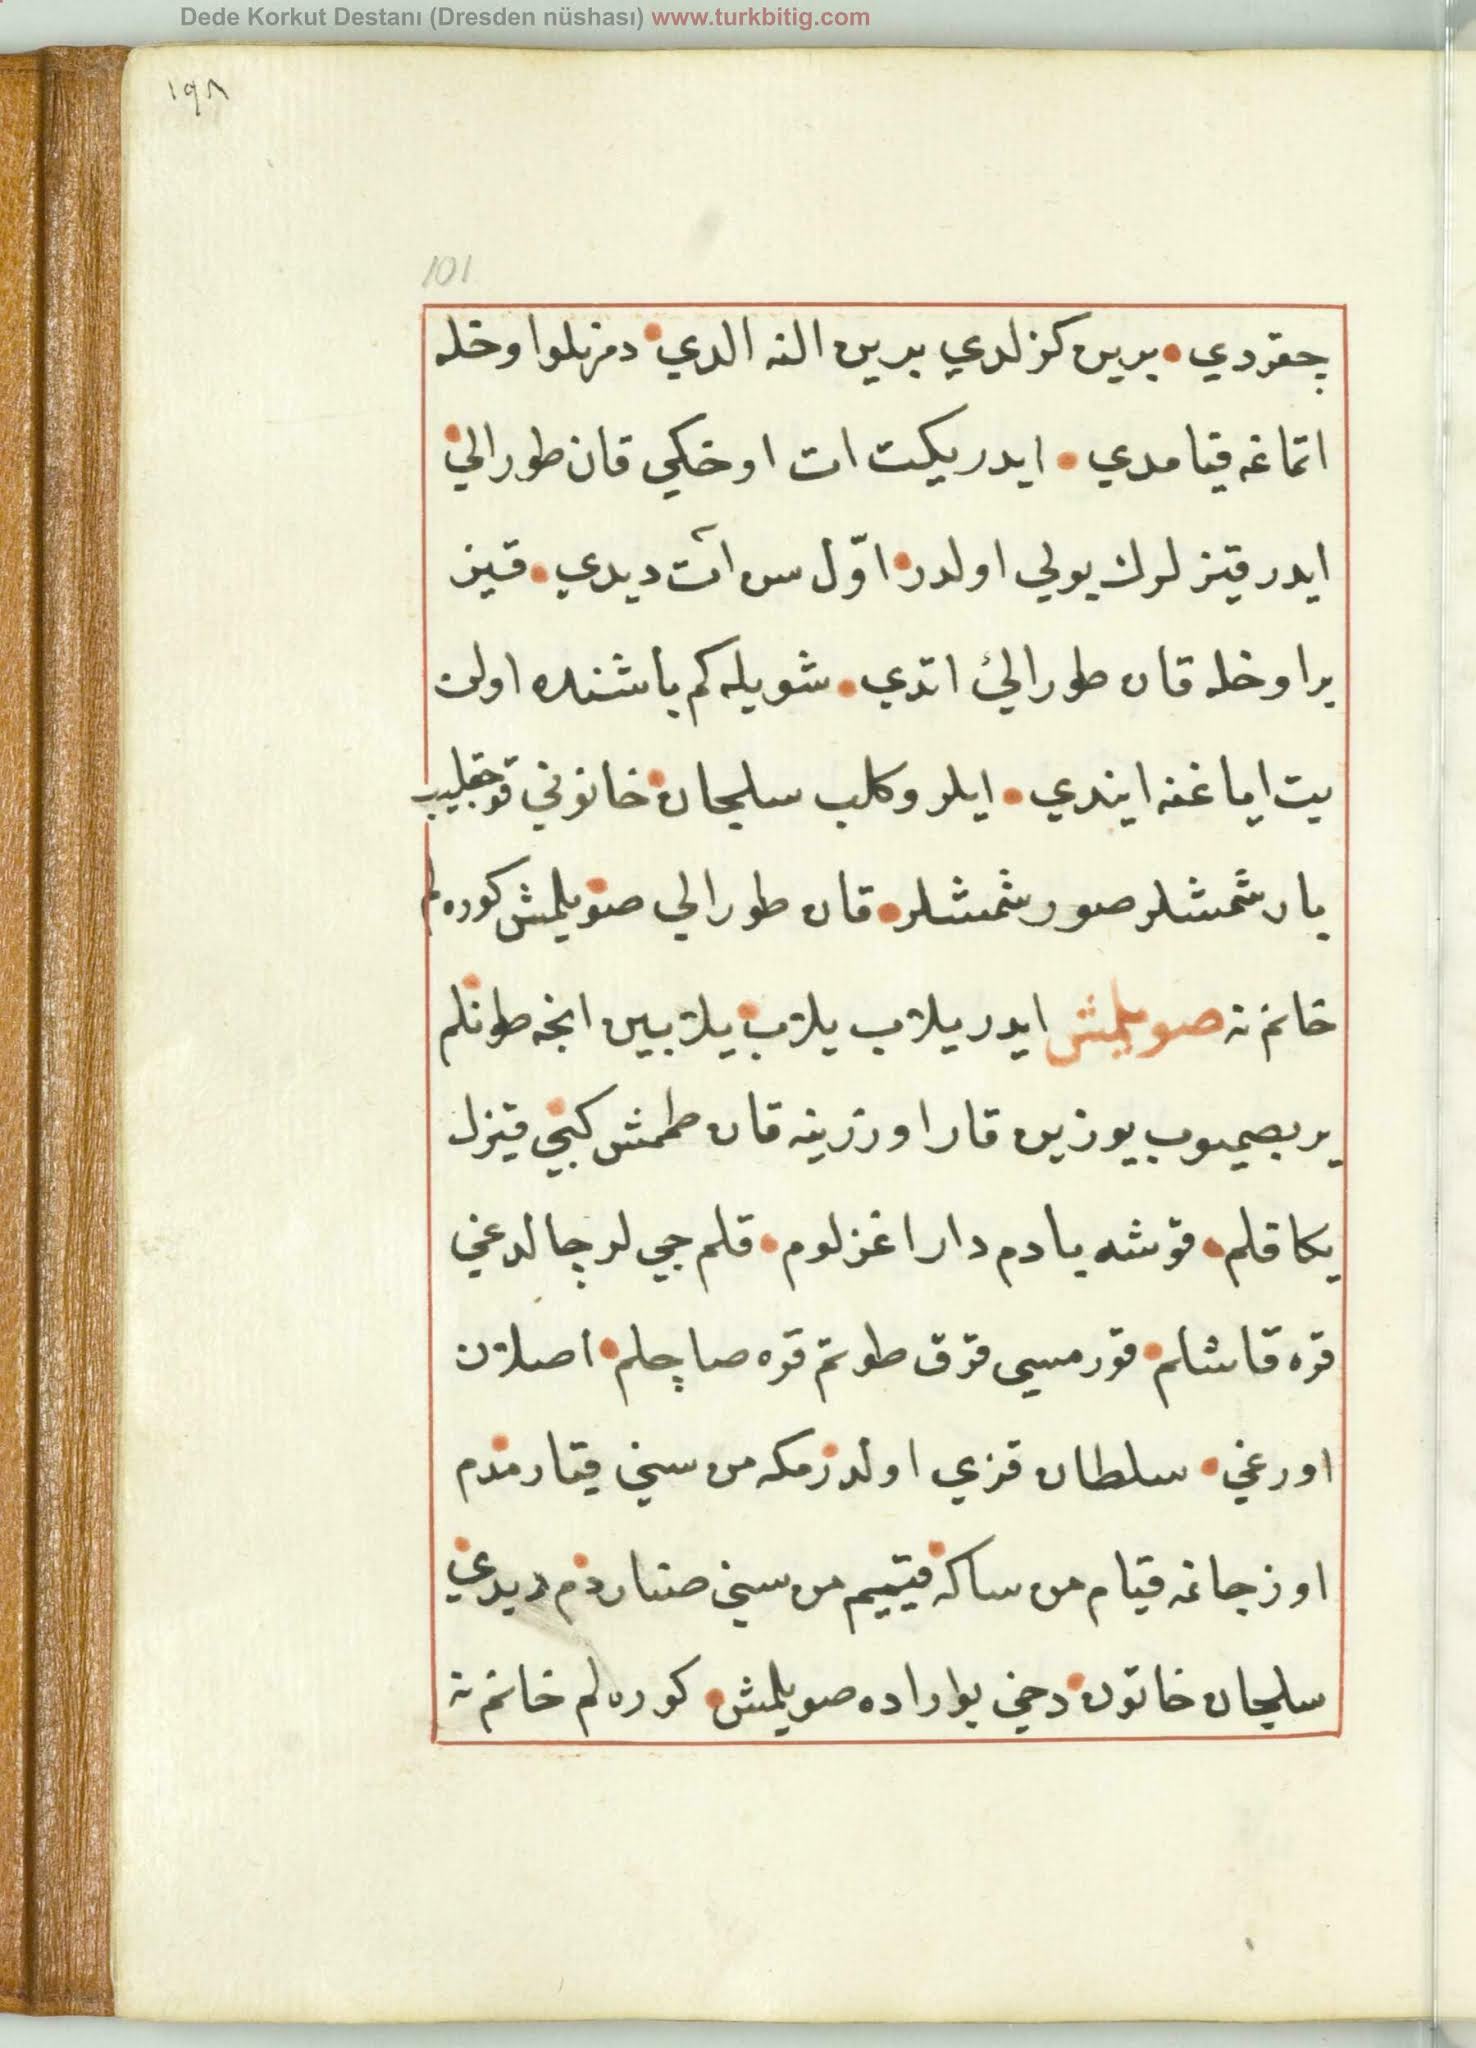 Dede Korkut Destanı (Dresden nüshası) www.turkbitig.com
١٩٨
101
چقردي برين كزلدي برين النه الدي دمرنلو اوخله
اتماغه قيامدي ايدر يكت ات اوخكي قان طورالي
ايدر قيزلرك يولي اولدر اوّل سن آت ديدي قيز
بر اوخله قان طورالي اتدي شويله كم باشنده اولن
بيت اياغنه ايندي ايلرو كلب سلجان خاتوني قوجقليب
بارشمشلر صورشمشلر قان طورالي صويلمش كوره لم
خانم نه صويلمش ايدر يلاب يلاب يلابين انجه طونلم
ير بصميوب يوزين قار اوزرينه قان طممش كبي قيزل
يكاقلم قوشه بادم دار اغزلوم قلم جي لر چالدغي
قره قاشلم قورمسي قرق طوتم قره صاچلم اصلان
اورغي سلطان قزي اولدرمكه من سني قيارمدم
اوز جانمه قيام من ساكه قيميم من سني صناردم ديدي
سلجان خاتون دخي بو اراده صويلمش كوره لم خانم نه